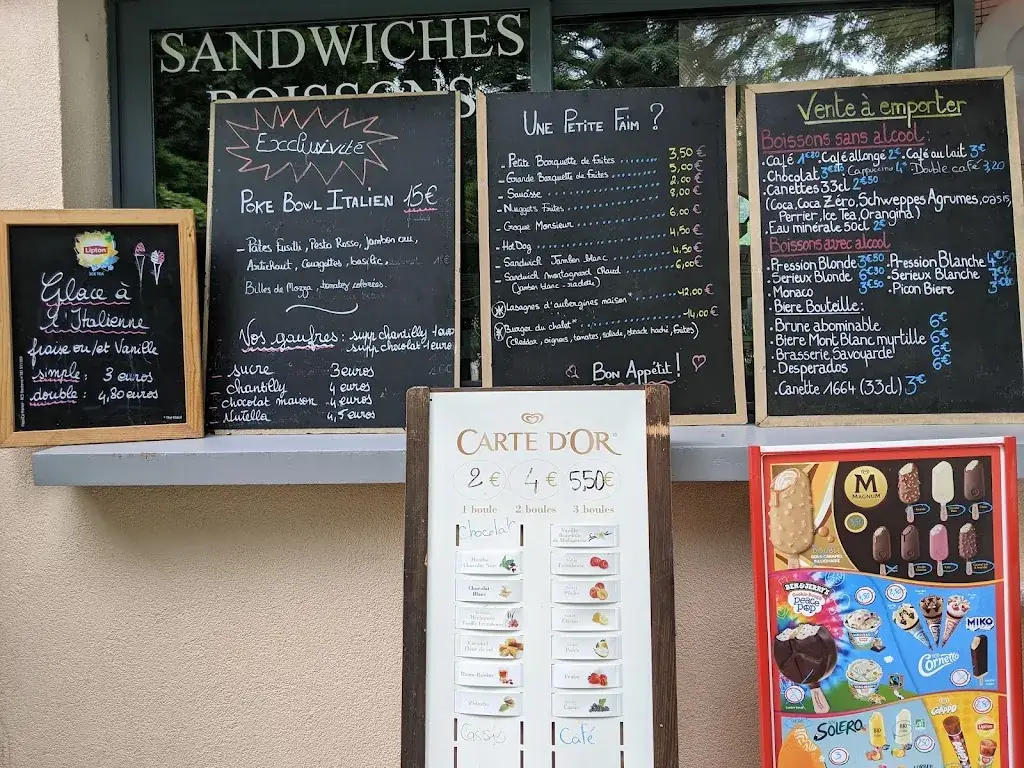 SANDWICHES
BOISSONS
Lipton
Glace à
l'Italienne
fraise ou/et Vanille
simple : 3 euros
double : 4,80 euros
Exclusivité
POKE BOWL ITALIEN 15€
- Pâtes Fusilli, Pesto Rosso, jambon cru,
Artichaut, Courgettes, basilic.
Billes de Mozza, tomates colorées.
Nos gaufres : supp chantilly 1 euro
supp chocolat 1 euro
- sucre 3 euros
chantilly 4 euros
chocolat maison 4 euros
Nutella 4,5 euros
UNE PETITE FAIM ?
- Petite Barquette de Frites ........ 3,50 €
- Grande Barquette de Frites ........ 5,00 €
- Saucisse 2,00 €
- Nuggets Frites 8,00 €
- Croque Monsieur 6,00 €
- Hot Dog 4,50 €
- Sandwich Jambon blanc 4,50 €
- Sandwich montagnard Chaud 6,00 €
(Jambon blanc - raclette)
Lasagnes d'aubergines maison 12,00 €
Burger du chalet 14,00 €
(Cheddar, oignons, tomates, salade, steack haché, frites)
BON APPÉTIT !
Vente à emporter
Boissons sans alcool :
. Café 1€80 . Café allongé 2€ . Café au lait 3€
. Chocolat Cappuccino 4€ Double café 3,20
. Canettes 33cl 2€50
(Coca, Coca Zéro, Schweppes Agrumes, oasis,
Perrier, Ice Tea, Orangina)
. Eau minérale 50cl 2€
Boissons avec alcool
. Pression Blonde 3€50 . Pression Blanche
. Serieux Blonde 6€30 . Serieux Blanche
. Monaco 3€50 . Picon Biere
. Biere Bouteille :
. Brune abominable 6€
. Biere Mont Blanc myrtille 6€
. Brasserie Savoyarde 6€
. Desperados 6€
. Canette 1664 (33cl) 3€
CARTE D'OR
2 € 4 € 5,50 €
1 boule 2 boules 3 boules
Chocolat
Vanille
Bourbon
de Madagascar
Menthe
Chocolat Noir
Framboise
Chocolat
Blanc
Caramel
Fleur de sel
Rhum-Raisins
Fraise
Pistache
Cassis
Café
M
MAGNUM
DOUBLE
BEN & JERRY'S
Peace
Pop
MIKO
Cornetto
SOLERO
Calippo
Lipton